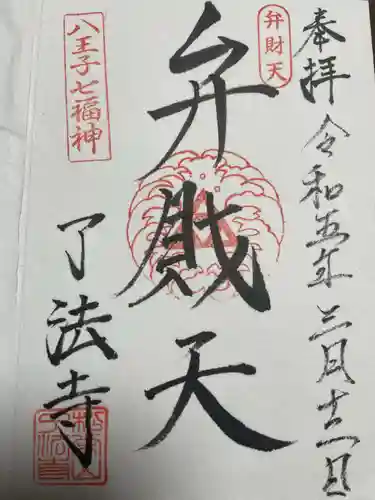 奉拝
令和五年三月十二日
弁財天
弁財天
八王子七福神
了法寺